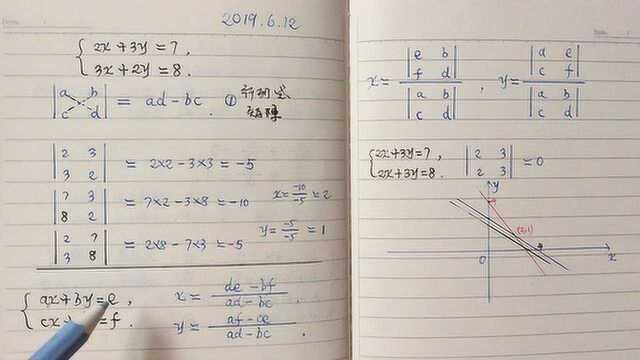 2019.6.12
{ 2x+3y=7,
3x+2y=8.
| a b
c d | = ad-bc. ① 行列式
矩阵
| 2 3
3 2 | = 2×2-3×3=-5
| 7 3
8 2 | = 7×2-3×8=-10
x= -10/-5 =2
| 2 7
3 8 | = 2×8-7×3=-5
y= -5/-5 = 1
{ ax+by=e,
cx+ =f.
x = de-bf / ad-bc,
y = af-ce / ad-bc.
x= | e b
f d | / | a b
c d | , y= | a e
c f | / | a b
c d |
{ 2x+3y=7,
2x+3y=8.
| 2 3
2 3 | =0
y
(2,1)
0
x